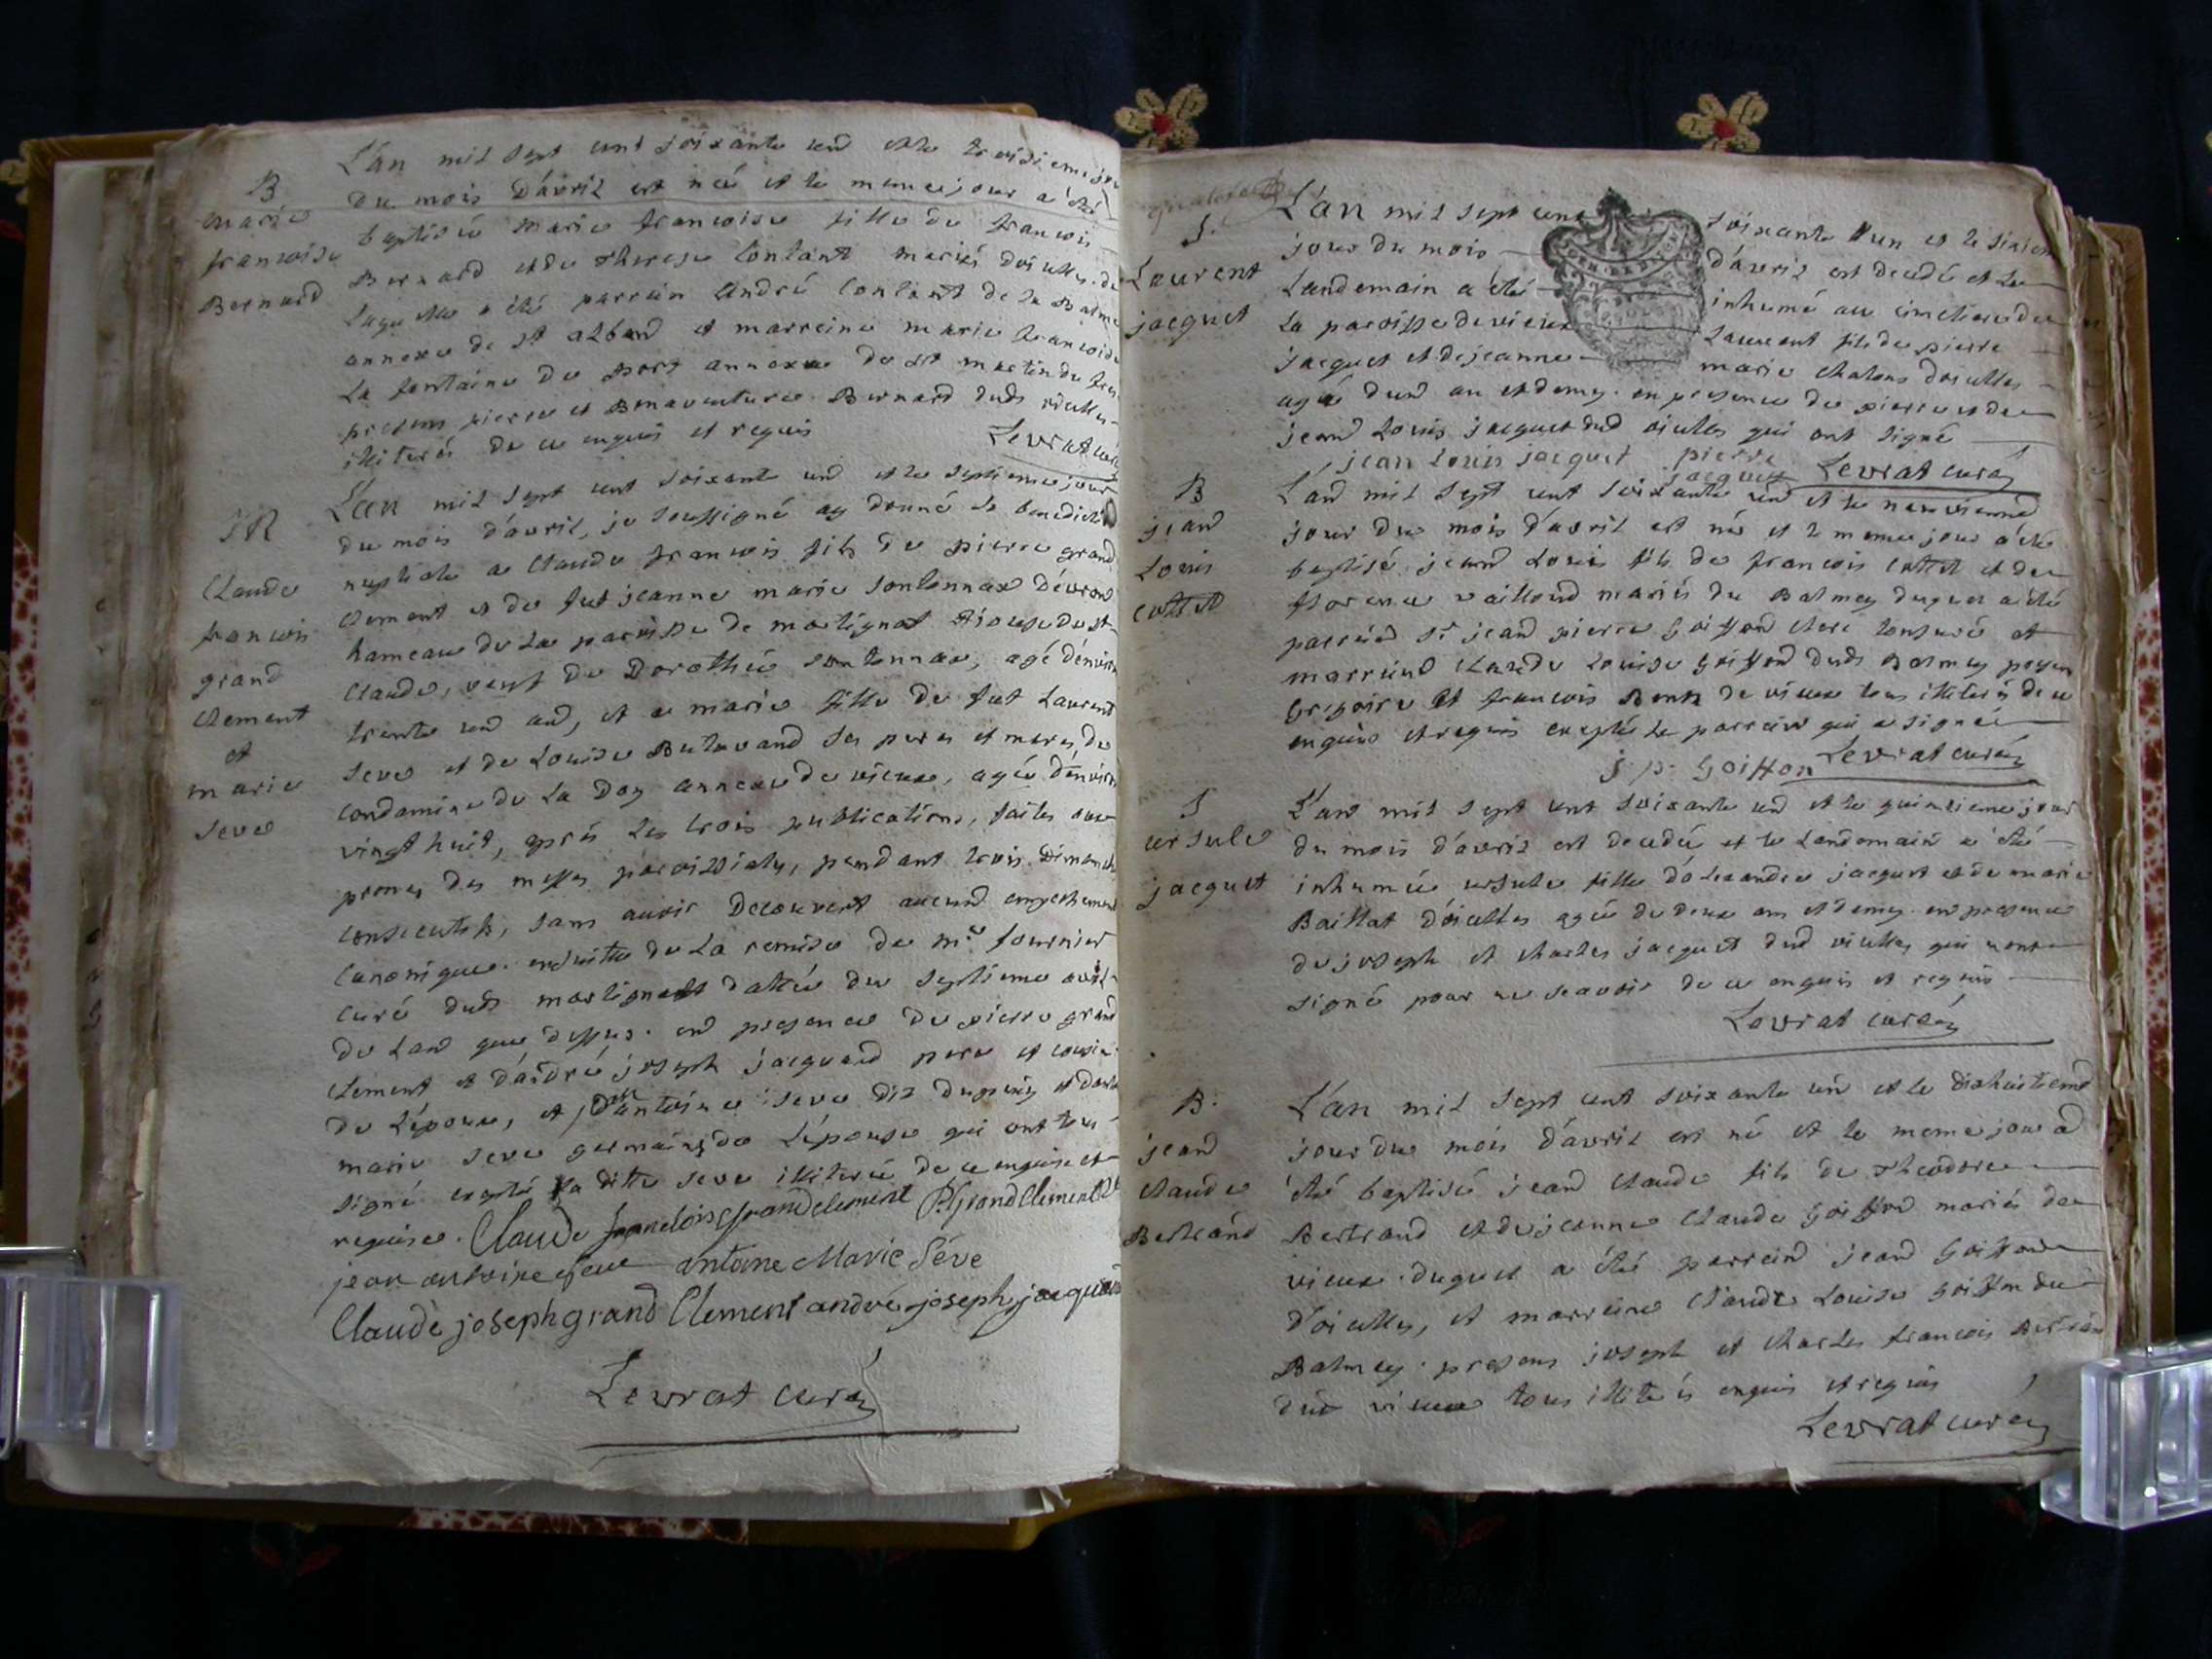 B
marie
francoise
Bernard
L'an mil sept cent soixante und et le troisieme jour
du mois d'avril est née et le meme jour a été
baptisée marie francoise fille de francois
Bernard et de Therese Contant mariés doiculles. de
laquelle a été parrain andré Contant de la Balme
annexe de st alband et marreine marie francoise
La fontaine du port annexe de st martin du
presens pierre et Bonaventure Bernard duds oiculles
illiterés de ce enquis et requis
Levrat curé
M
Claude
francois
grand
Clement
et
marie
seve
L'an mil sept cent soixante und et le septieme jour
du mois d'avril, je soussigné ay donné la benediction
nuptiale a Claude francois fils de pierre grand
clement et de fut jeanne marie sontonnax d'évrond
hameau de la paroisse de martignat diocese de st
claude, veuf de Dorothée sontonnax, agé d'environ
trente und and, et a marie fille de fut Laurent
seve et de Louise Butavand ses peres et meres, de
condamine de La Doy annexe de vieux, agée d'environ
vingt huit, aprés les trois publications, faites aux
prones des messes paroissiales, pendant trois dimanches
consecutifs, sans avoir decouvert aucund empechement
canonique. ensuitte de la remise de mre fournier
curé duds martignat dattée du septieme avril
de land que dessus. end presence de pierre grand
clement et d'andré joseph jacquand pere et cousin
de l'époux, et jean antoine seve dit dupuis et d'antoine
marie seve germains de l'épouse qui ont tous
signé excepté la ditte seve illiterée de ce enquise et
requise. Claude francois grandclement P. Grand Clement
jean antoine seve antoine Marie Séve
Claude joseph grand Clement andré joseph jacquand
Levrat curé
S.
Laurent
jacquet
L'an mil sept cent soixante & un et le sixiem
jour du mois d'avril est decedé et le
Landemain a été inhumé au cimetiere de
la paroisse de vieux Laurent fils de pierre
jacquet et de jeanne marie chatons doiculles
agé dund an et demy. en presence de pierre et de
jeand Louis jacquet dud oiculles qui ont signé
jean Louis jacquet pierre
jacquet Levrat curé
B
jeand
Louis
cottet
L'and mil sept cent soixante und et le neuvieme
jour du mois d'avril est né et le meme jour a été
baptisé jeand Louis fils de francois cottet et de
florence vaillond mariés du Balmey duquel a été
parreind sr jeand pierre Goiffond clerc tonsuré et
marreind Claude Louise Goiffond duds Balmey presens
Gregoire et francois Bonn de vieux tous illiterés de ce
enquis et requis excepté le parrein qui a signé
j. p. Goiffon Levrat curé
S
ursule
jacquet
L'and mil sept cent soixante und et le quinzieme jour
du mois d'avril est decedée et le Landemain a été
inhumée ursule fille d'alexandre jacquet et de marie
Baillat d'oiculles agée de deux ans et demy. en presence
de joseph et charles jacquet dud oiculles qui nont
signé pour ne scavoir de ce enquis et requis
Levrat curé
B.
jeand
claude
Bertrand
L'an mil sept cent soixante un et le dixhuitieme
jour du mois d'avril est né et le meme jour a
été baptisé jeand claude fils de Theodore
Bertrand et de jeanne claude Goiffon mariés de
vieux. duquel a été parreind jeand Goiffond
d'oiculles, et marreine Claude Louise Goiffon du
Balmey. presens joseph et charles francois Bertrand
dud vieux tous illiterés enquis et requis
Levrat curé